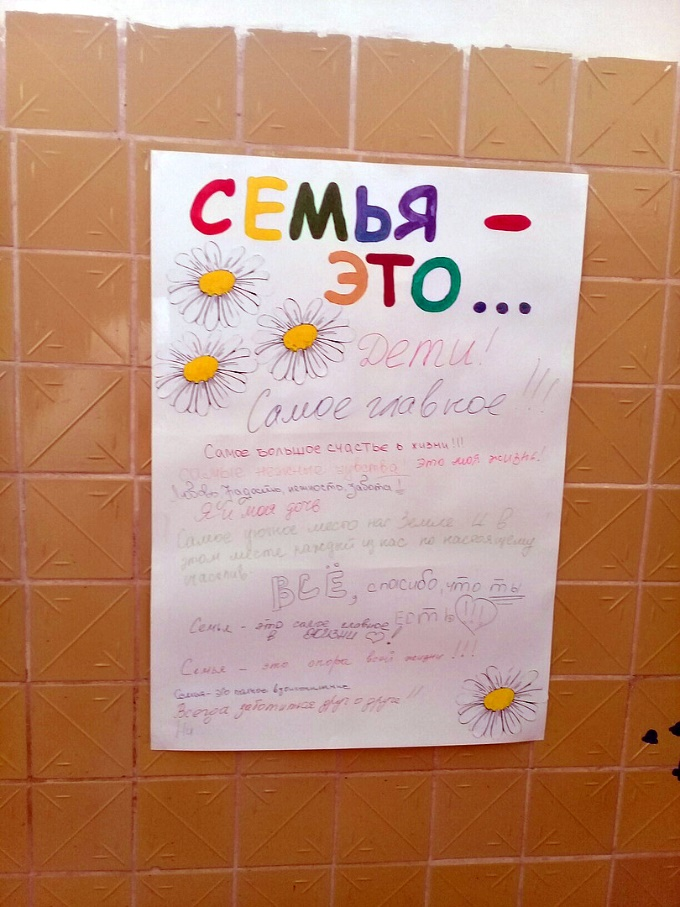 СЕМЬЯ -
ЭТО...
Дети!
Самое главное !!!
Самое большое счастье в жизни!!!
самые нежные чувства! это моя жизнь!
Любовь, радость, нежность, забота!
Я и моя дочь
Самое уютное место на Земле. И в
этом месте каждый из нас по настоящему
счастлив
ВСЁ, спасибо, что ты
ЕСТЬ !!!
Семья - это самое главное
в жизни !
Семья - это опора всей жизни !!!
Семья - это
Всегда заботиться друг о друге!!